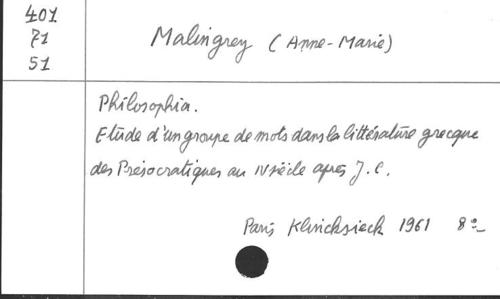 401
71
51
Malingrey (Anne-Marie)
Philosophia.
Etude d'un groupe de mots dans la littérature grecque
des Présocratiques au IV siècle après J.C.
Paris Klincksieck 1961 8°